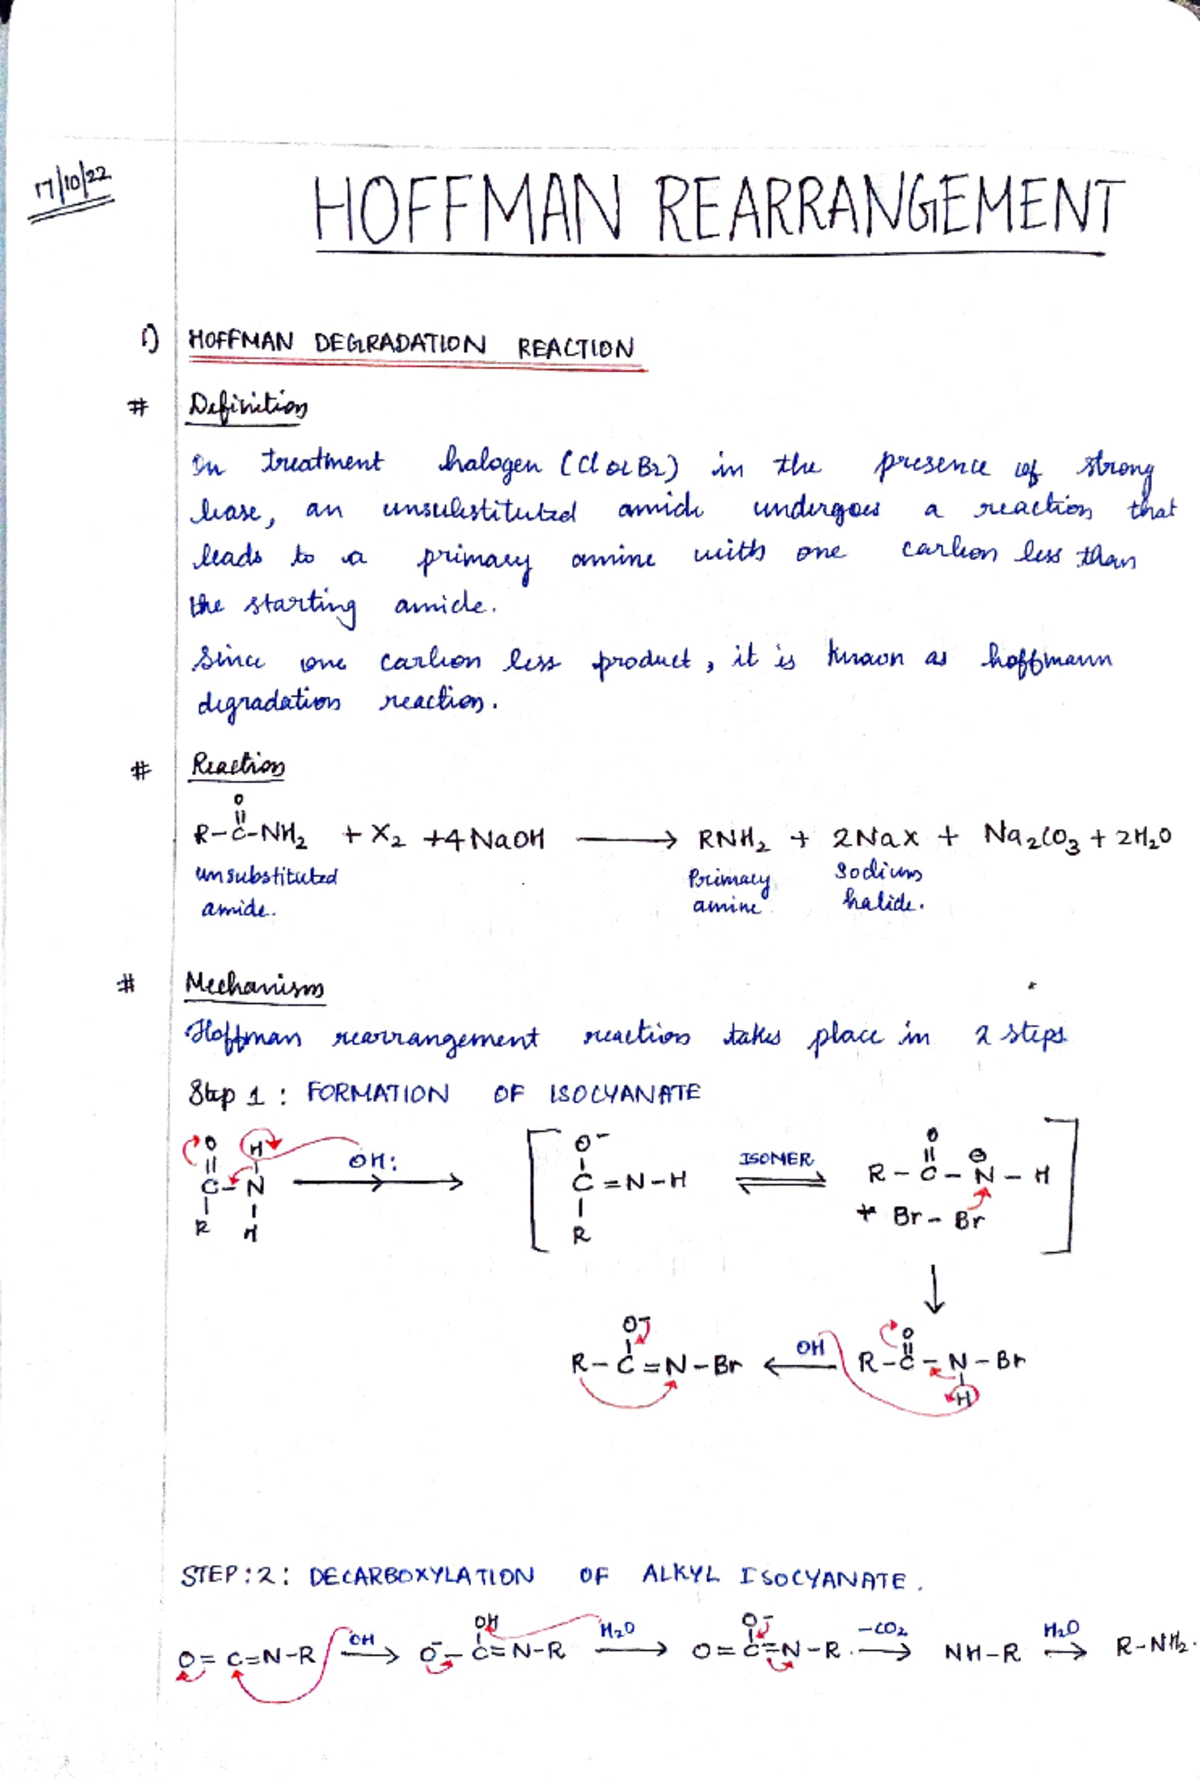 17/10/22
HOFFMAN REARRANGEMENT
1) HOFFMAN DEGRADATION REACTION
# Definition
On treatment halogen (Cl or Br) in the presence of strong
base, an unsubstituted amide undergoes a reaction that
leads to a primary amine with one carbon less than
the starting amide.
Since one carbon less product, it is known as hoffmann
degradation reaction.
# Reaction
O
||
R-C-NH₂ + X₂ + 4 NaOH → RNH₂ + 2NaX + Na₂CO₃ + 2H₂O
unsubstituted Primary Sodium
amide. amine halide.
# Mechanism
Hoffman rearrangement reaction takes place in 2 steps
Step 1 : FORMATION OF ISOCYANATE
O H OH: O⁻ ISOMER O ⊖
C-N → [ C=N-H ⇌ R-C-N-H
R H R + Br-Br ]
↓
O⁻ OH O
R-C=N-Br ← R-C-N-Br
H
STEP:2: DECARBOXYLATION OF ALKYL ISOCYANATE.
OH OH H₂O O⁻ -CO₂ H₂O
O=C=N-R → O⁻-C=N-R → O=C-N-R → NH-R → R-NH₂.